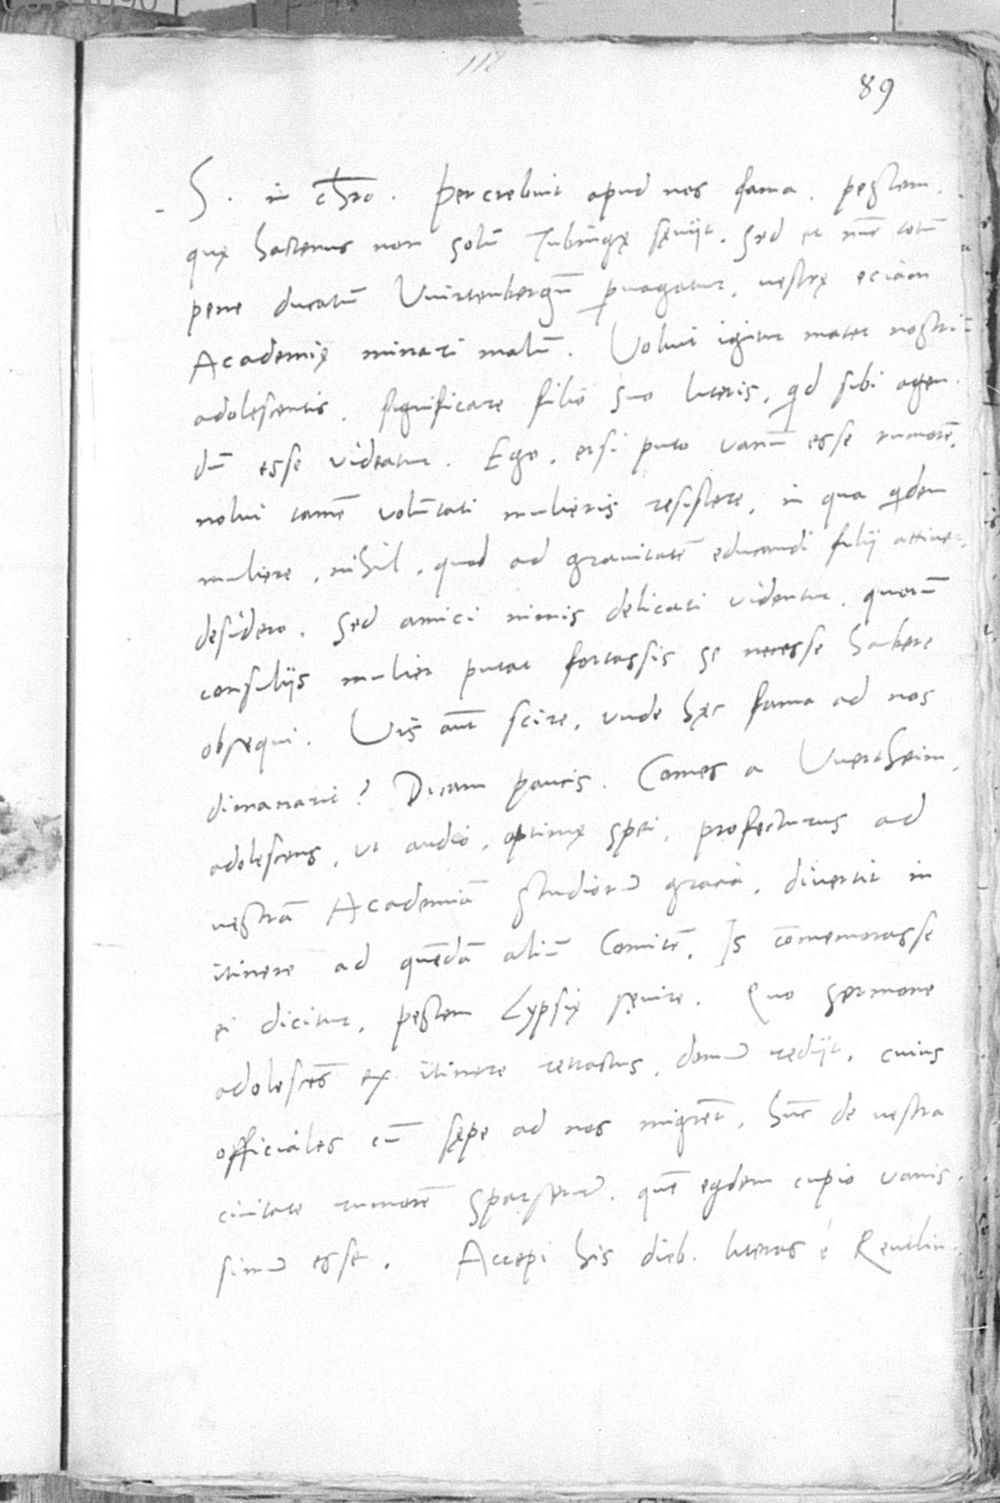 118
89
S. in chro. Percrebuit apud nos fama, pestem,
quę hactenus non solū Tubingę sęuijt, sed et nūc totū
pene ducatū Vuirtenbergū puagatur, uestrę eciam
Academię minari malū. Voluit igitur mater nostri
adolescentis, significare filio suo literis, qd sibi agen-
dū esse videatur. Ego, etsi puto vanū esse rumorē,
nolui tamē volūtati mulieris resistere, in qua qdem
muliere, nihil, quod ad grauitatē educandi filij attinet,
desidero. Sed amici nimis delicati videntur, quorū
consilijs mulier putat fortassis se necesse habere
obsequi. Vis aūt scire, vnde hęc fama ad nos
dimanarit? Dicam paucis. Comes a Vuertheim,
adolescens, ut audio, optimę spei, profecturus ad
uestrā Academiā studiorū gracia, divertit in
itinere ad quēdā aliū Comitē. Is cōmemorasse
ei dicitur, pestem Lypsię sęuire. Quo sermone
adolescēs ex itinere retractus, domū redijt, cuius
officiales cū sępe ad nos migrēt, hūc de uestra
ciuitate rumorē sparserūt, quē eqdem cupio vanis-
simū esse. Accepi his dieb. literas è Reutlin-